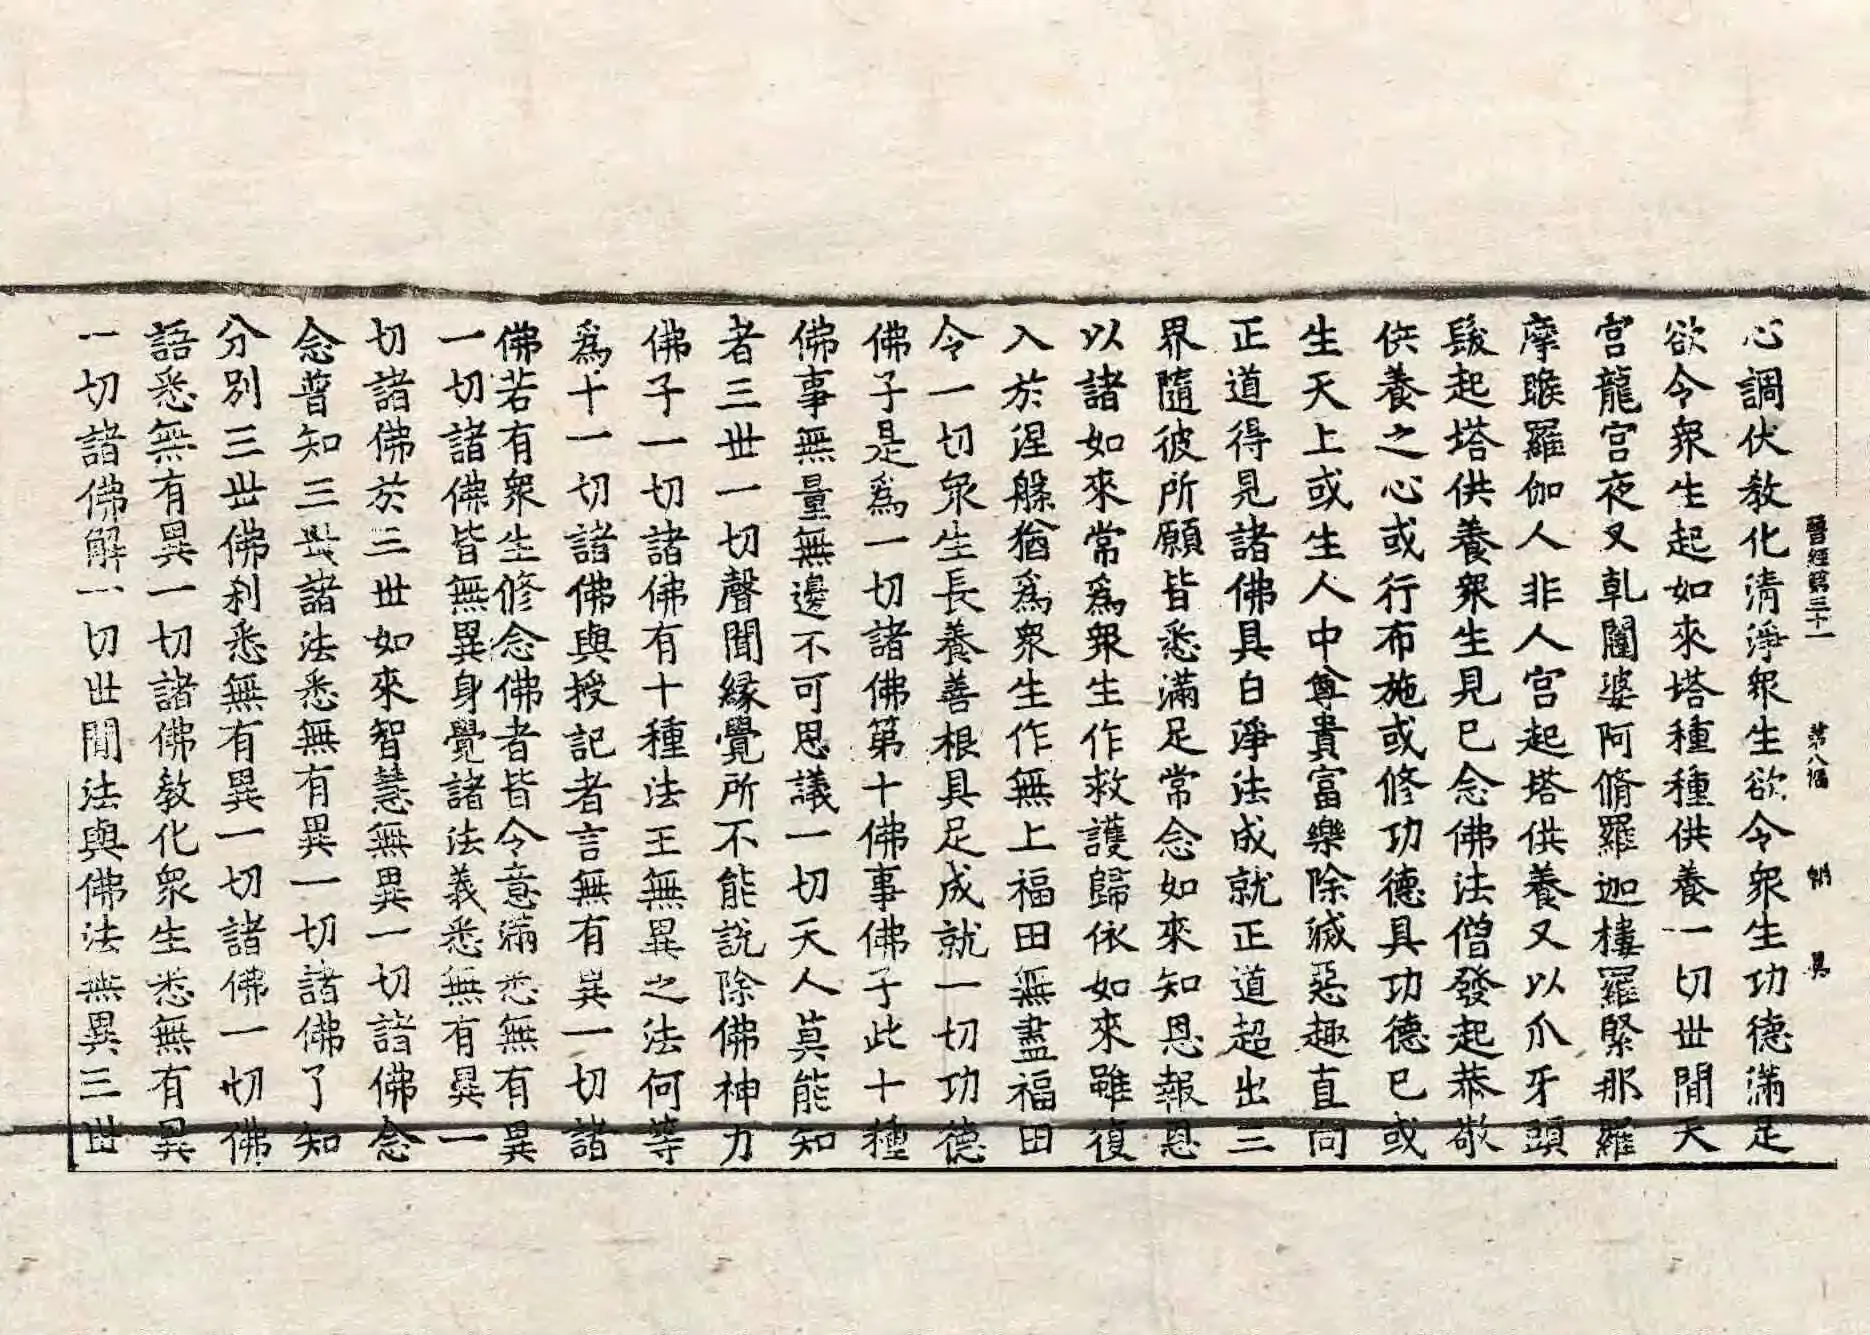 晉經第三十一 第八幅 罽
心調伏敎化清淨衆生欲令衆生功德滿足
欲令衆生起如來塔種種供養一切世間天
宮龍宮夜叉乹闥婆阿脩羅迦樓羅緊那羅
摩睺羅伽人非人宮起塔供養又以爪牙頭
髮起塔供養衆生見已念佛法僧發起恭敬
供養之心或行布施或修功德具功德已或
生天上或生人中尊貴富樂除滅惡趣直向
正道得見諸佛具白淨法成就正道超出三
界隨彼所願皆悉滿足常念如來知恩報恩
以諸如來常爲衆生作救護歸依如來雖復
入於涅槃猶爲衆生作無上福田無盡福田
令一切衆生長養善根具足成就一切功德
佛子是爲一切諸佛第十佛事佛子此十種
佛事無量無邊不可思議一切天人莫能知
者三世一切聲聞緣覺所不能說除佛神力
佛子一切諸佛有十種法王無異之法何等
爲十一切諸佛與授記者言無有異一切諸
佛若有衆生修念佛者皆令意滿悉無有異
一切諸佛皆無異身覺諸法義悉無有異一
切諸佛於三世如來智慧無異一切諸佛念
念普知三世諸法悉無有異一切諸佛了知
分別三世佛刹悉無有異一切諸佛一切佛
語悉無有異一切諸佛敎化衆生悉無有異
一切諸佛解一切世間法與佛法無異三世